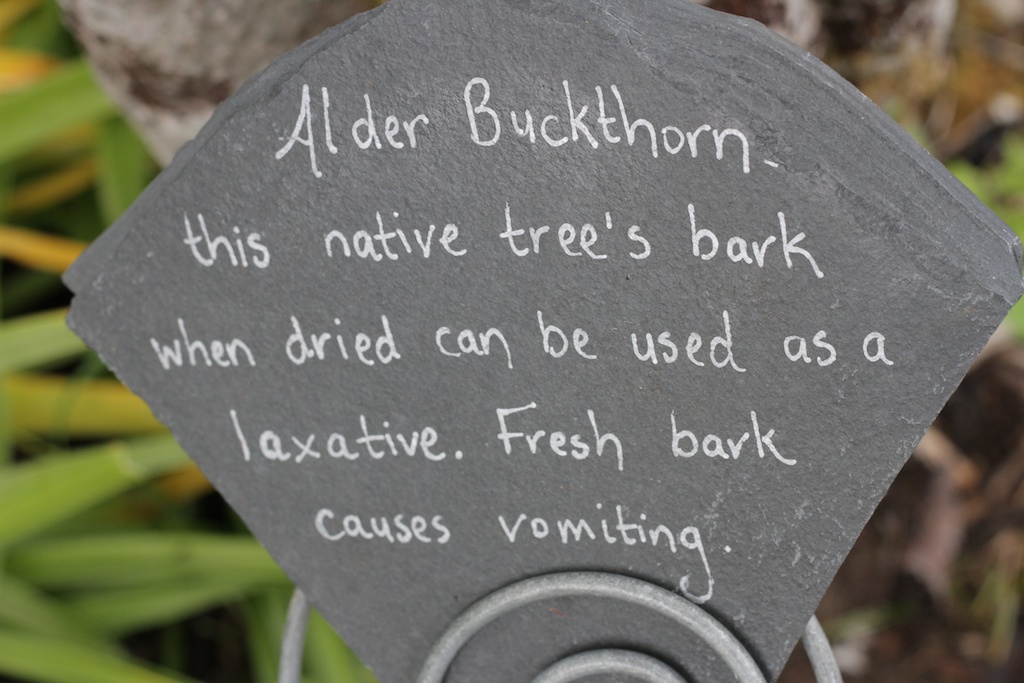 Alder Buckthorn -
this native tree's bark
when dried can be used as a
laxative. Fresh bark
causes vomiting.